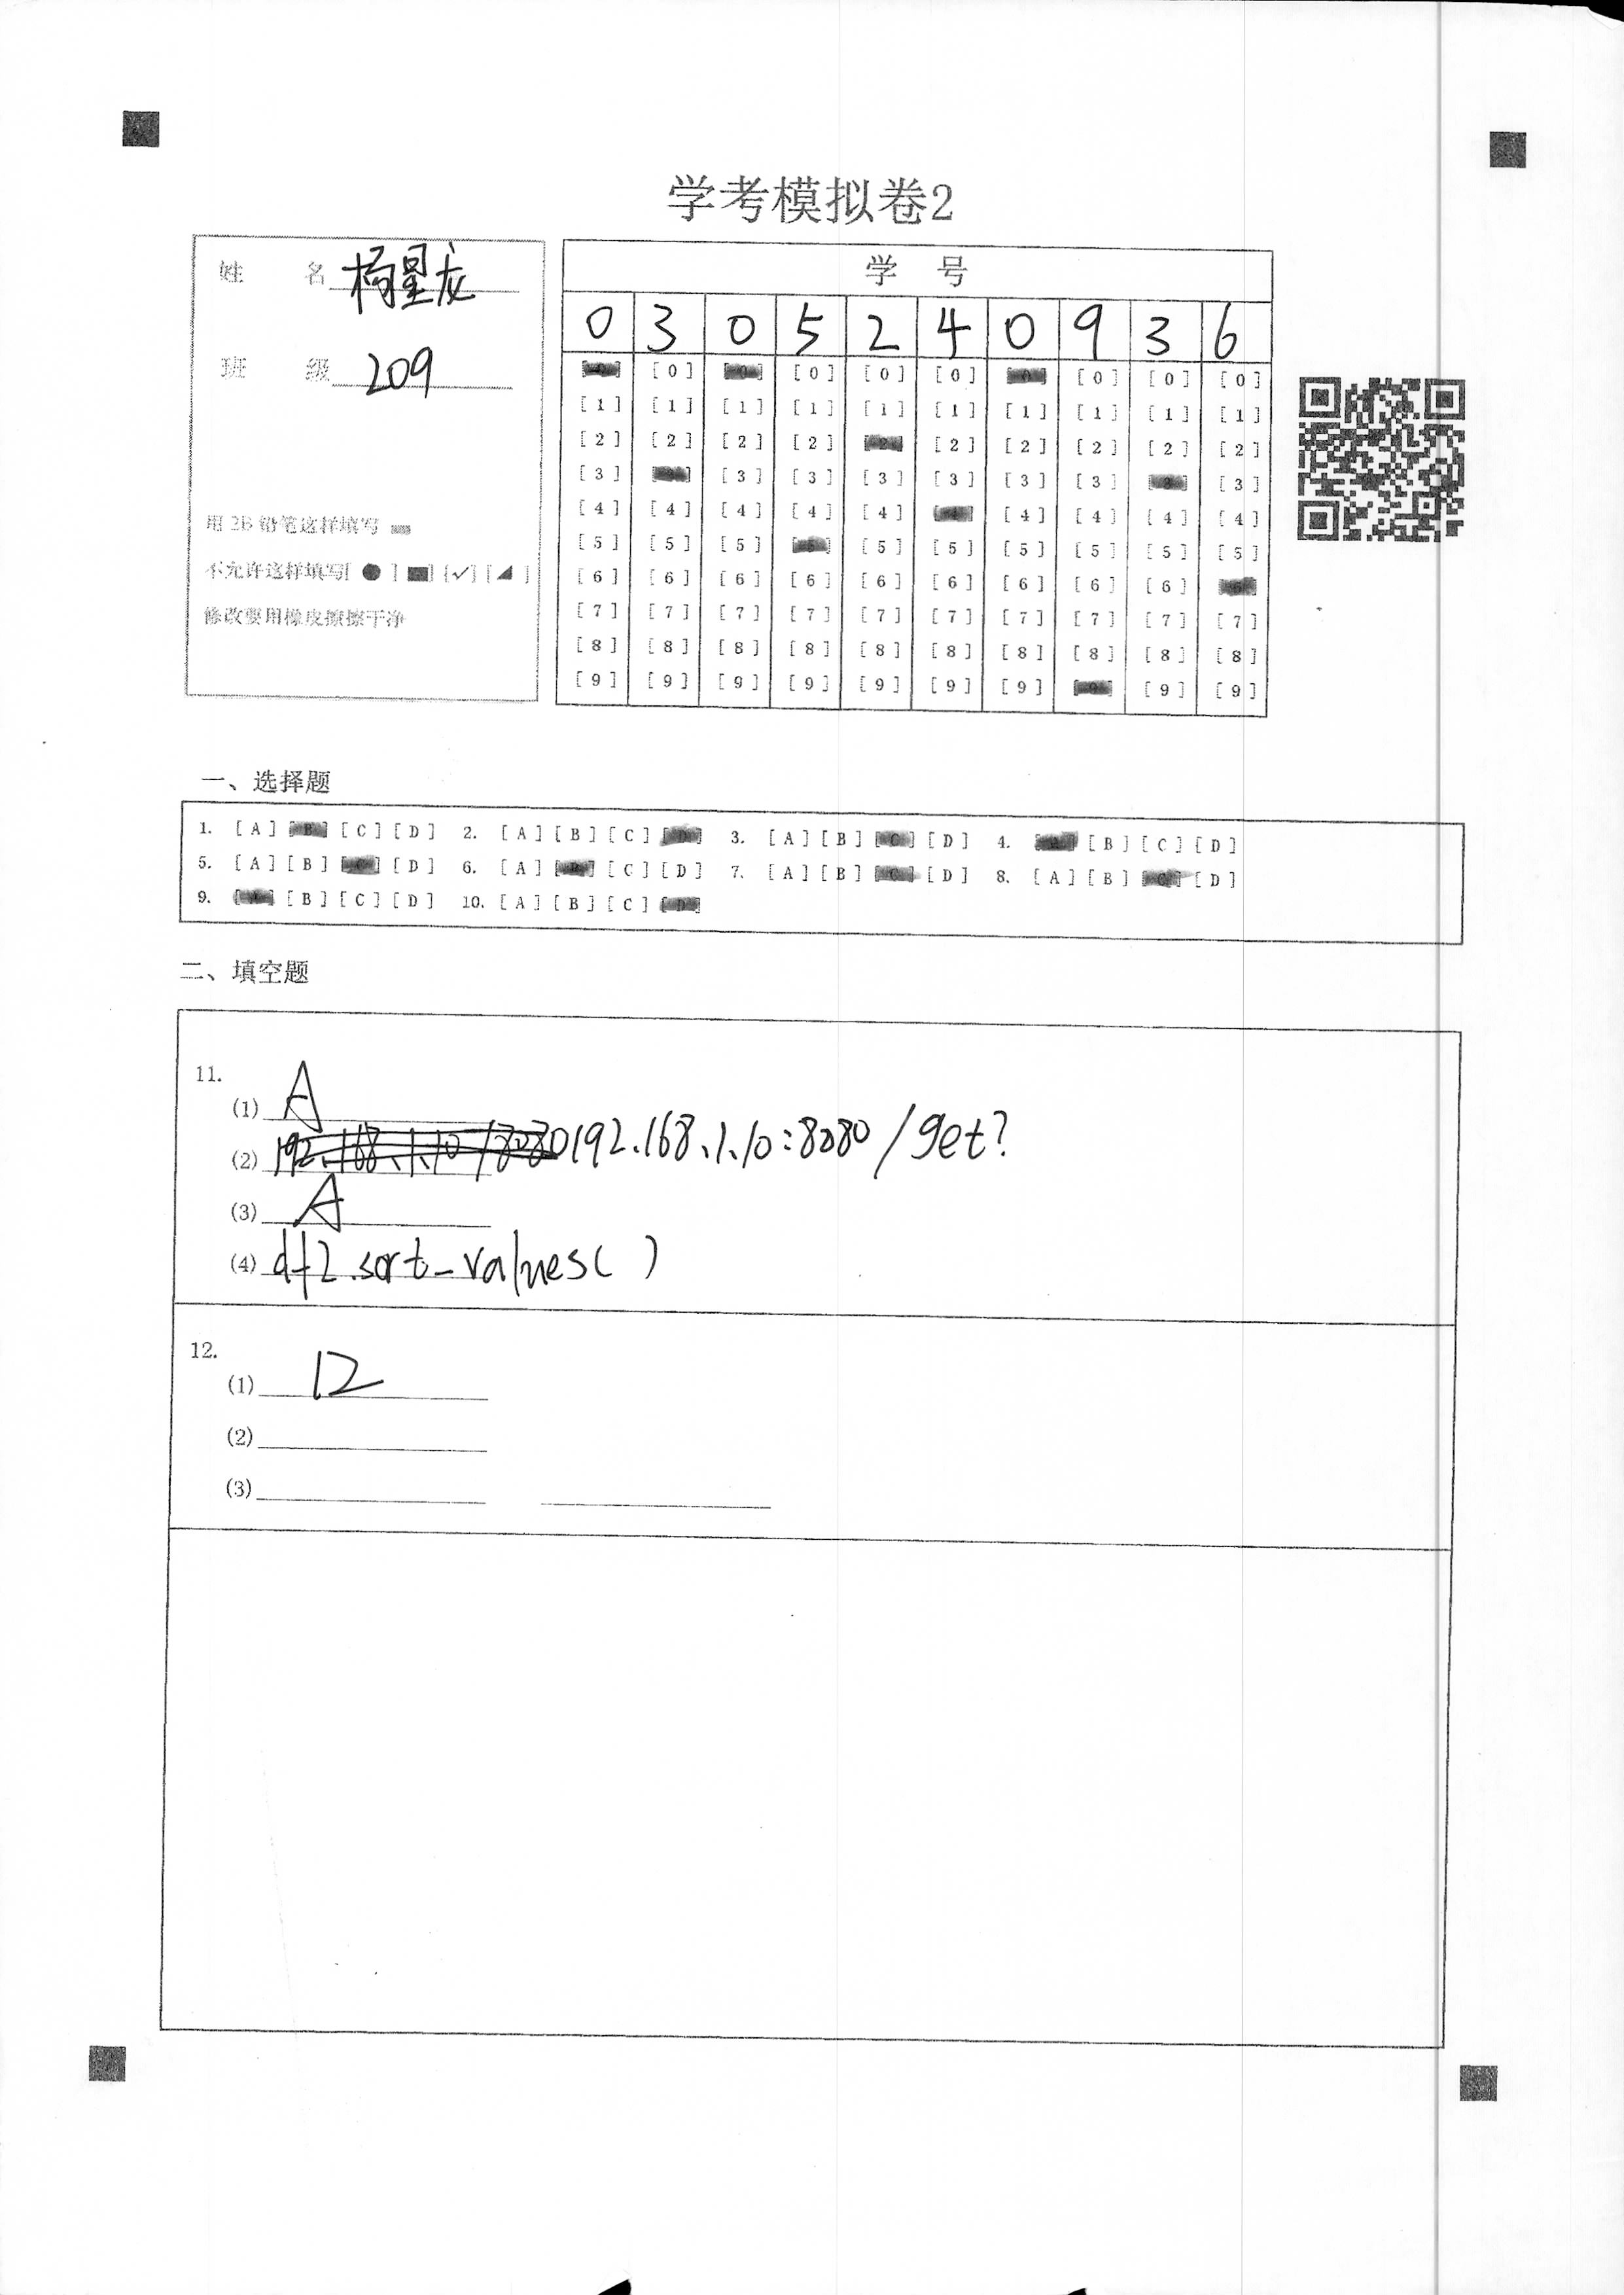 学考模拟卷2
姓 名 杨星龙
班 级 209
用 2B 铅笔这样填写
不允许这样填写[ ● ] [■] [✓] [◢ ]
修改要用橡皮擦擦干净
学 号
0 3 0 5 2 4 0 9 3 6
[0] [0] [0] [0] [0] [0] [0] [0] [0] [0]
[1] [1] [1] [1] [1] [1] [1] [1] [1] [1]
[2] [2] [2] [2] [2] [2] [2] [2] [2] [2]
[3] [3] [3] [3] [3] [3] [3] [3] [3] [3]
[4] [4] [4] [4] [4] [4] [4] [4] [4] [4]
[5] [5] [5] [5] [5] [5] [5] [5] [5] [5]
[6] [6] [6] [6] [6] [6] [6] [6] [6] [6]
[7] [7] [7] [7] [7] [7] [7] [7] [7] [7]
[8] [8] [8] [8] [8] [8] [8] [8] [8] [8]
[9] [9] [9] [9] [9] [9] [9] [9] [9] [9]
一、选择题
1. [A] [B] [C] [D] 2. [A] [B] [C] [D] 3. [A] [B] [C] [D] 4. [A] [B] [C] [D]
5. [A] [B] [C] [D] 6. [A] [B] [C] [D] 7. [A] [B] [C] [D] 8. [A] [B] [C] [D]
9. [A] [B] [C] [D] 10. [A] [B] [C] [D]
二、填空题
11.
(1) A
(2) 192.168.1.10:8080/get?
(3) A
(4) df2.sort_values( )
12.
(1) 12
(2)
(3)